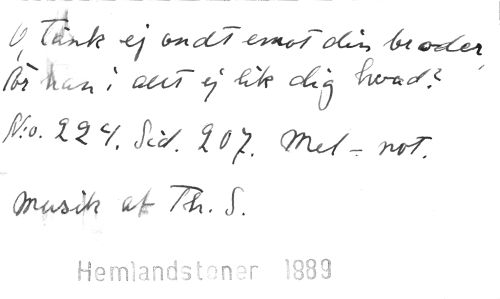 O, tänk ej ondt emot din broder,
För han i allt ej lik dig hvad?
N:o. 224. Sid. 207. Mel = not.
musik af Th. S.
Hemlandstoner 1889